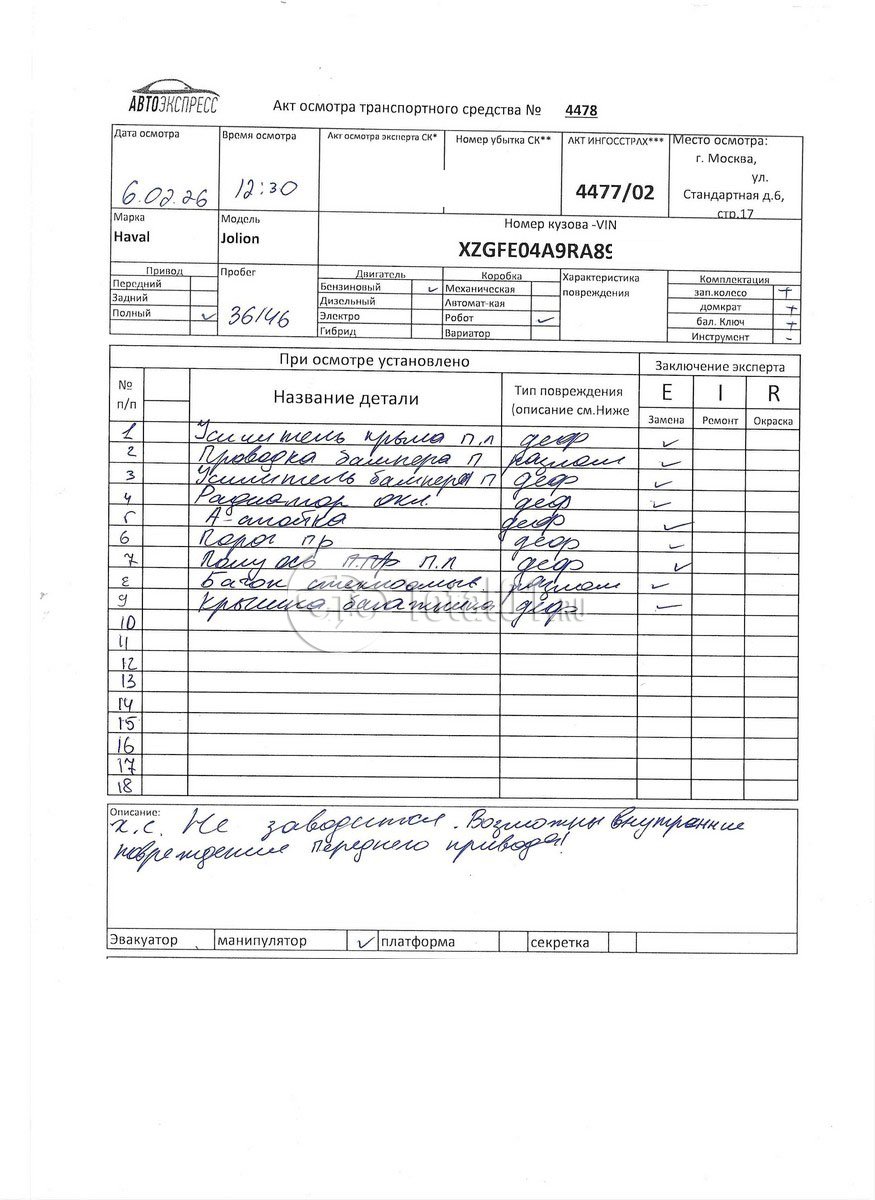 АВТОЭКСПРЕСС
Акт осмотра транспортного средства № 4478
Дата осмотра Время осмотра Акт осмотра эксперта СК* Номер убытка СК** АКТ ИНГОССТРАХ*** Место осмотра:
г. Москва,
ул.
6.02.26 12:30 4477/02 Стандартная д.6,
стр.17
Марка Модель Номер кузова -VIN
Haval Jolion XZGFE04A9RA89
Привод Пробег Двигатель Коробка Характеристика Комплектация
Передний Бензиновый ✓ Механическая повреждения зап.колесо +
Задний Дизельный Автомат-кая домкрат +
Полный ✓ 36146 Электро Робот ✓ бал. Ключ +
Гибрид Вариатор Инструмент -
При осмотре установлено Заключение эксперта
№ п/п Название детали Тип повреждения (описание см.Ниже E I R
Замена Ремонт Окраска
1 Усилитель крыла п.л деф ✓
2 Проводка бампера п разлом ✓
3 Усилитель бампера п деф ✓
4 Радиатор охл. деф ✓
5 А-стойка деф ✓
6 Порог пр деф ✓
7 Полуось п.л деф ✓
8 Бачок стеклоомыв разлом ✓
9 Крышка багажника деф ✓
10
11
12
13
14
15
16
17
18
Описание:
х.с. Не заводится. Возможны внутранние
повреждение переднего привода!
Эвакуатор манипулятор ✓ платформа секретка